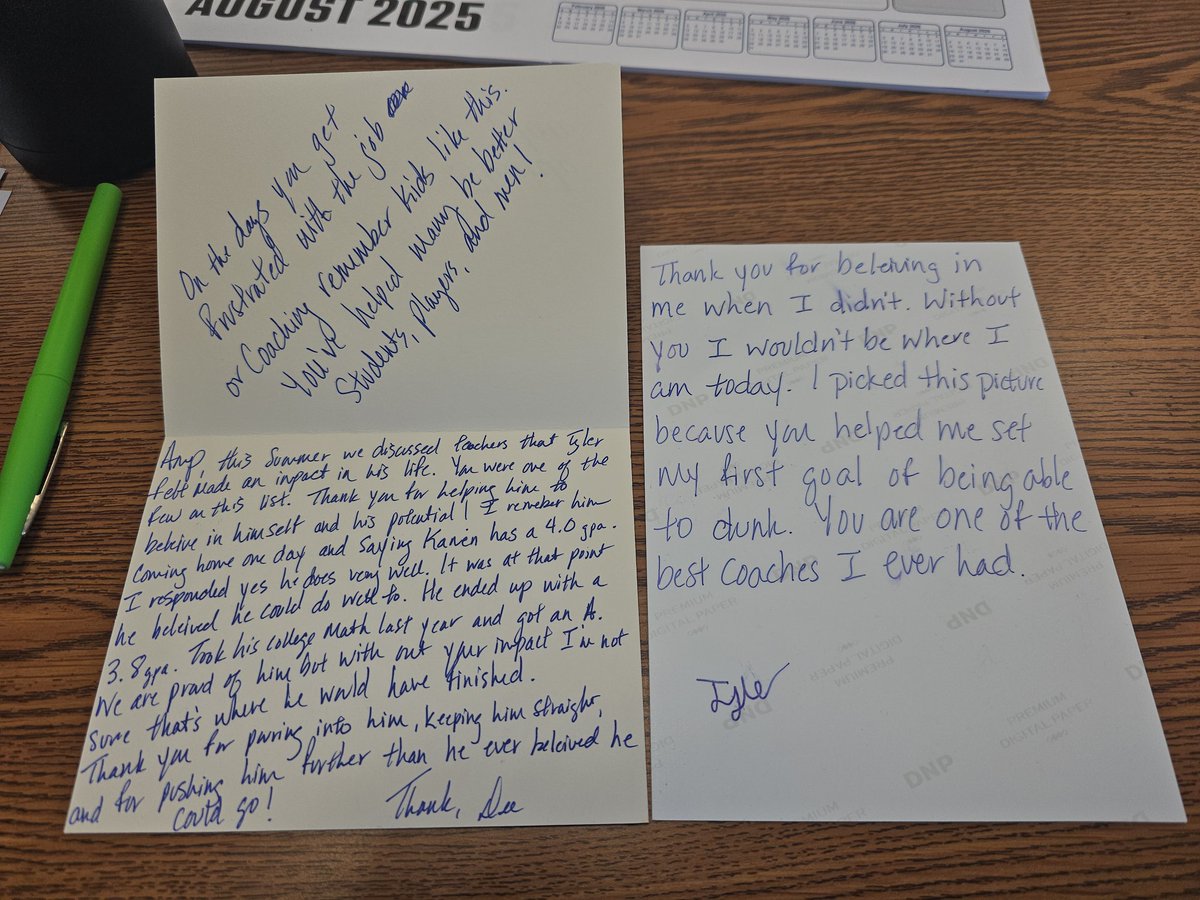 AUGUST 2025
On the days you get
frustrated with the job
or Coaching remember kids like this.
You've helped many be better
Students, players, and men!
Amp, this Summer we discussed teachers that Tyler
felt made an impact in his life. You were one of the
few on this list. Thank you for helping him to
behive in himself and his potential! I remeber him
Coming home one day and saying Kamen has a 4.0 gpa.
I responded yes he does very well. It was at that point
he beleived he could do well to. He ended up with a
3.8 gpa. Took his college Math last year and got an A.
We are proud of him but with out your impact I'm not
sure that's where he would have finished.
Thank you for pouring into him, keeping him straight,
and for pushing him further than he ever beleived he
could go!
Thank, Dee
Thank you for beleiving in
me when I didn't. Without
you I wouldn't be where I
am today. I picked this picture
because you helped me set
my first goal of being able
to dunk. You are one of the
best coaches I ever had.
Tyler
DNP
PREMIUM
DIGITAL PAPER